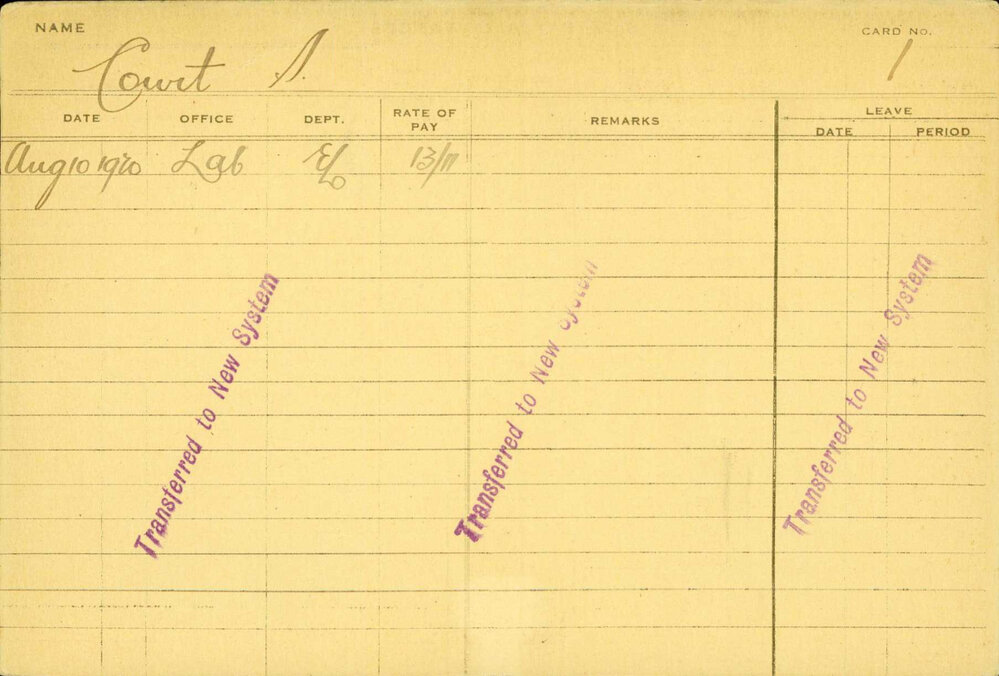 NAME
CARD No.
Court S.
1
DATE OFFICE DEPT. RATE OF PAY REMARKS LEAVE
DATE PERIOD
Aug 10 1920 Lab 13/11
Transferred to New System
Transferred to New System
Transferred to New System